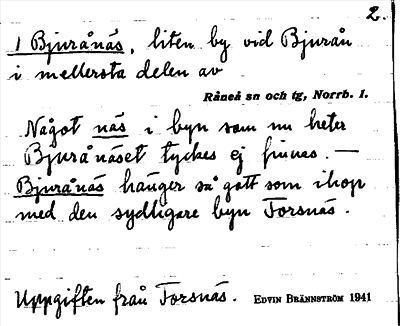 2.
1 Bjurånäs, liten by vid Bjurån
i mellersta delen av
Råneå sn och tg, Norrb. l.
Något näs i byn som nu heter
Bjurånäset tyckes ej finnas. —
Bjurånäs hänger så gott som ihop
med den sydligare byn Forsnäs.
Uppgiften från Forsnäs. EDVIN BRÄNNSTRÖM 1941